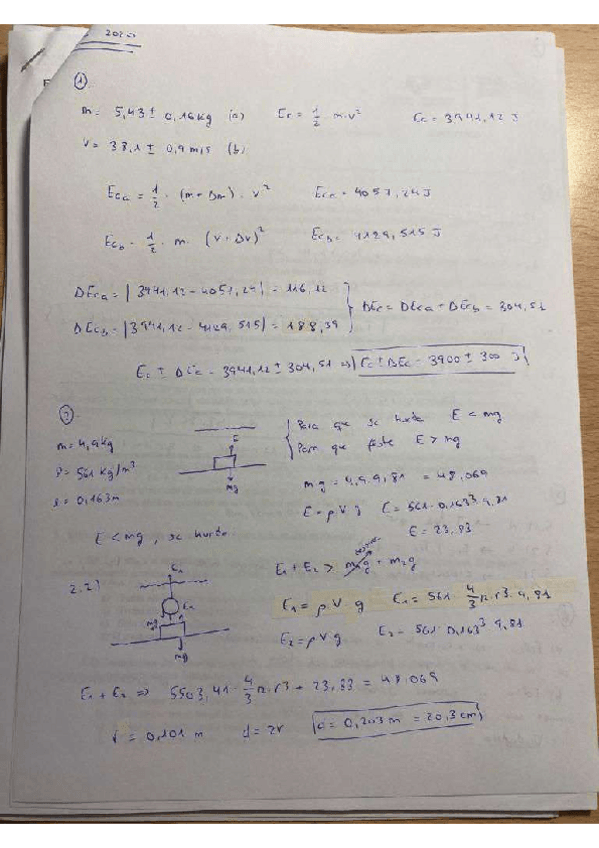 2020
①
m = 5,43 ± 0,16 kg (a) Ec = 1/2 · m·v² Ec = 3941,12 J
v = 38,1 ± 0,9 m/s (b)
Eca = 1/2 · (m + Dm) · v² Eca = 4057,24 J
Ecb = 1/2 · m · (v + Dv)² Ecb = 4129,515 J
DEca = |3941,12 - 4057,24| = 116,12
DEcb = |3941,12 - 4129,515| = 188,39
DEc = DEca + DEcb = 304,51
Ec ± DEc = 3941,12 ± 304,51 => Ec ± DEc = 3900 ± 300 J
②
m = 4,9 kg
ρ = 561 kg/m³
s = 0,163 m
E
mg
Para que se hunda E < mg
Para que flote E > mg
mg = 4,9 · 9,81 = 48,069
E = ρ V g E = 561 · 0,163³ · 9,81
E = 23,83
E < mg, se hunde.
2.2)
E₁
mg
mg
E₁ + E₂ > m₁g + m₂g
E₁ = ρ · V · g E₁ = 561 · 4/3 π · r³ · 9,81
E₂ = ρ V g E₂ = 561 · 0,163³ · 9,81
E₁ + E₂ => 5503,41 · 4/3 π · r³ + 23,83 = 48,069
r = 0,101 m d = 2r d = 0,203 m = 20,3 cm